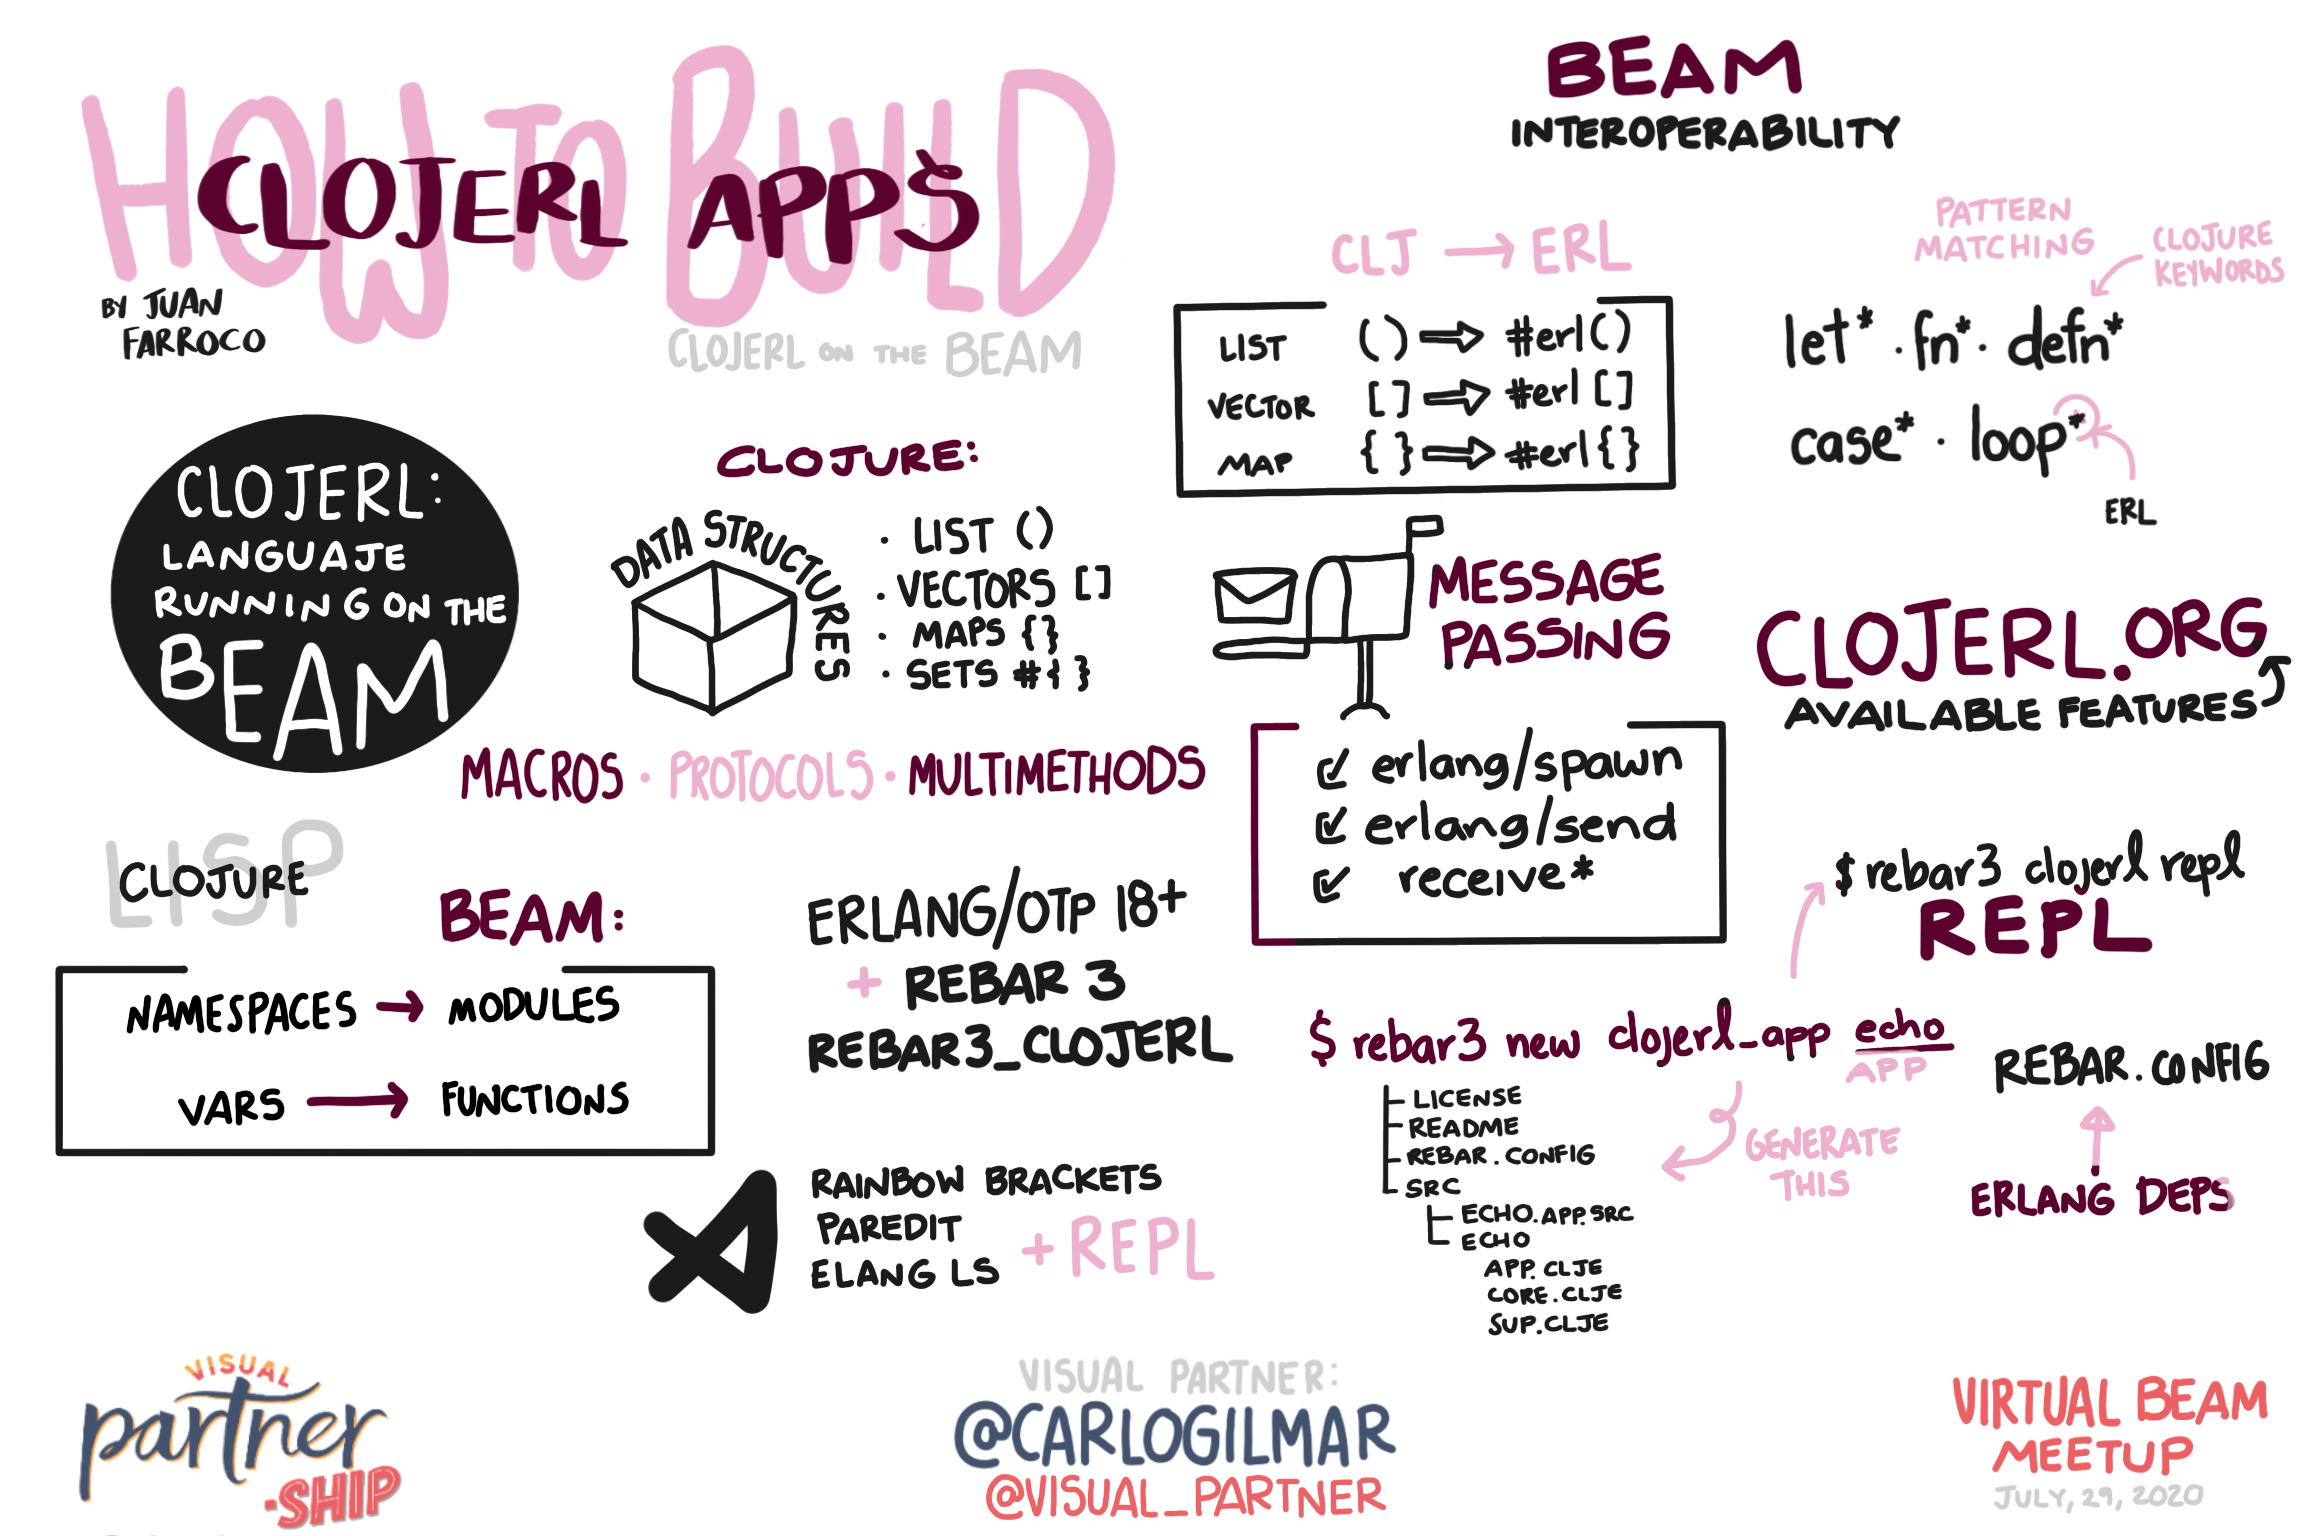 HOW TO BUILD
CLOJERL APPS
BY JUAN
FARROCO
CLOJERL ON THE BEAM
CLOJERL:
LANGUAJE
RUNNING ON THE
BEAM
CLOJURE:
DATA STRUCTURES
· LIST ()
· VECTORS []
· MAPS {}
· SETS #{}
MACROS · PROTOCOLS · MULTIMETHODS
LISP
CLOJURE
BEAM:
NAMESPACES → MODULES
VARS → FUNCTIONS
ERLANG/OTP 18+
+ REBAR 3
REBAR3_CLOJERL
RAINBOW BRACKETS
PAREDIT
ELANG LS
+ REPL
BEAM
INTEROPERABILITY
CLJ → ERL
LIST () ⇒ #erl()
VECTOR [] ⇒ #erl[]
MAP {} ⇒ #erl{}
PATTERN
MATCHING
CLOJURE
KEYWORDS
let* · fn* · defn*
case* · loop*
ERL
MESSAGE
PASSING
erlang/spawn
erlang/send
receive*
CLOJERL.ORG
AVAILABLE FEATURES
$ rebar3 clojerl repl
REPL
$ rebar3 new clojerl_app echo
APP
LICENSE
README
REBAR.CONFIG
SRC
ECHO.APP.SRC
ECHO
APP.CLJE
CORE.CLJE
SUP.CLJE
GENERATE
THIS
REBAR.CONFIG
ERLANG DEPS
VISUAL
partner
·SHIP
VISUAL PARTNER:
@CARLOGILMAR
@VISUAL_PARTNER
VIRTUAL BEAM
MEETUP
JULY, 29, 2020